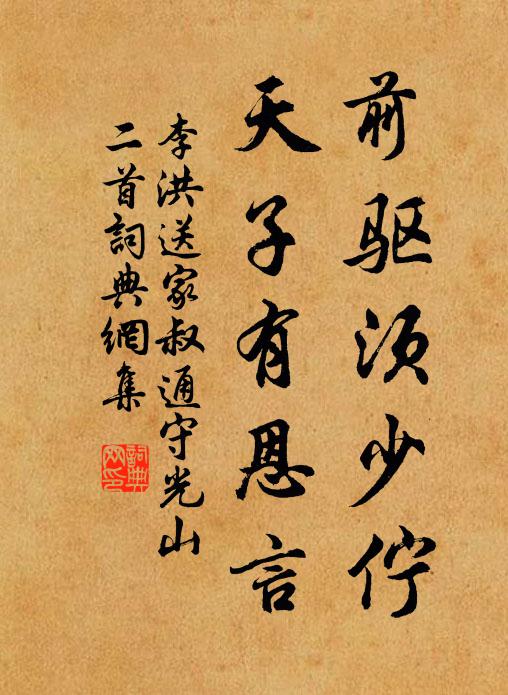 前驱须少伫
天子有恩言
李洪送家叔通守光山
二首詞典網集
詞典網印